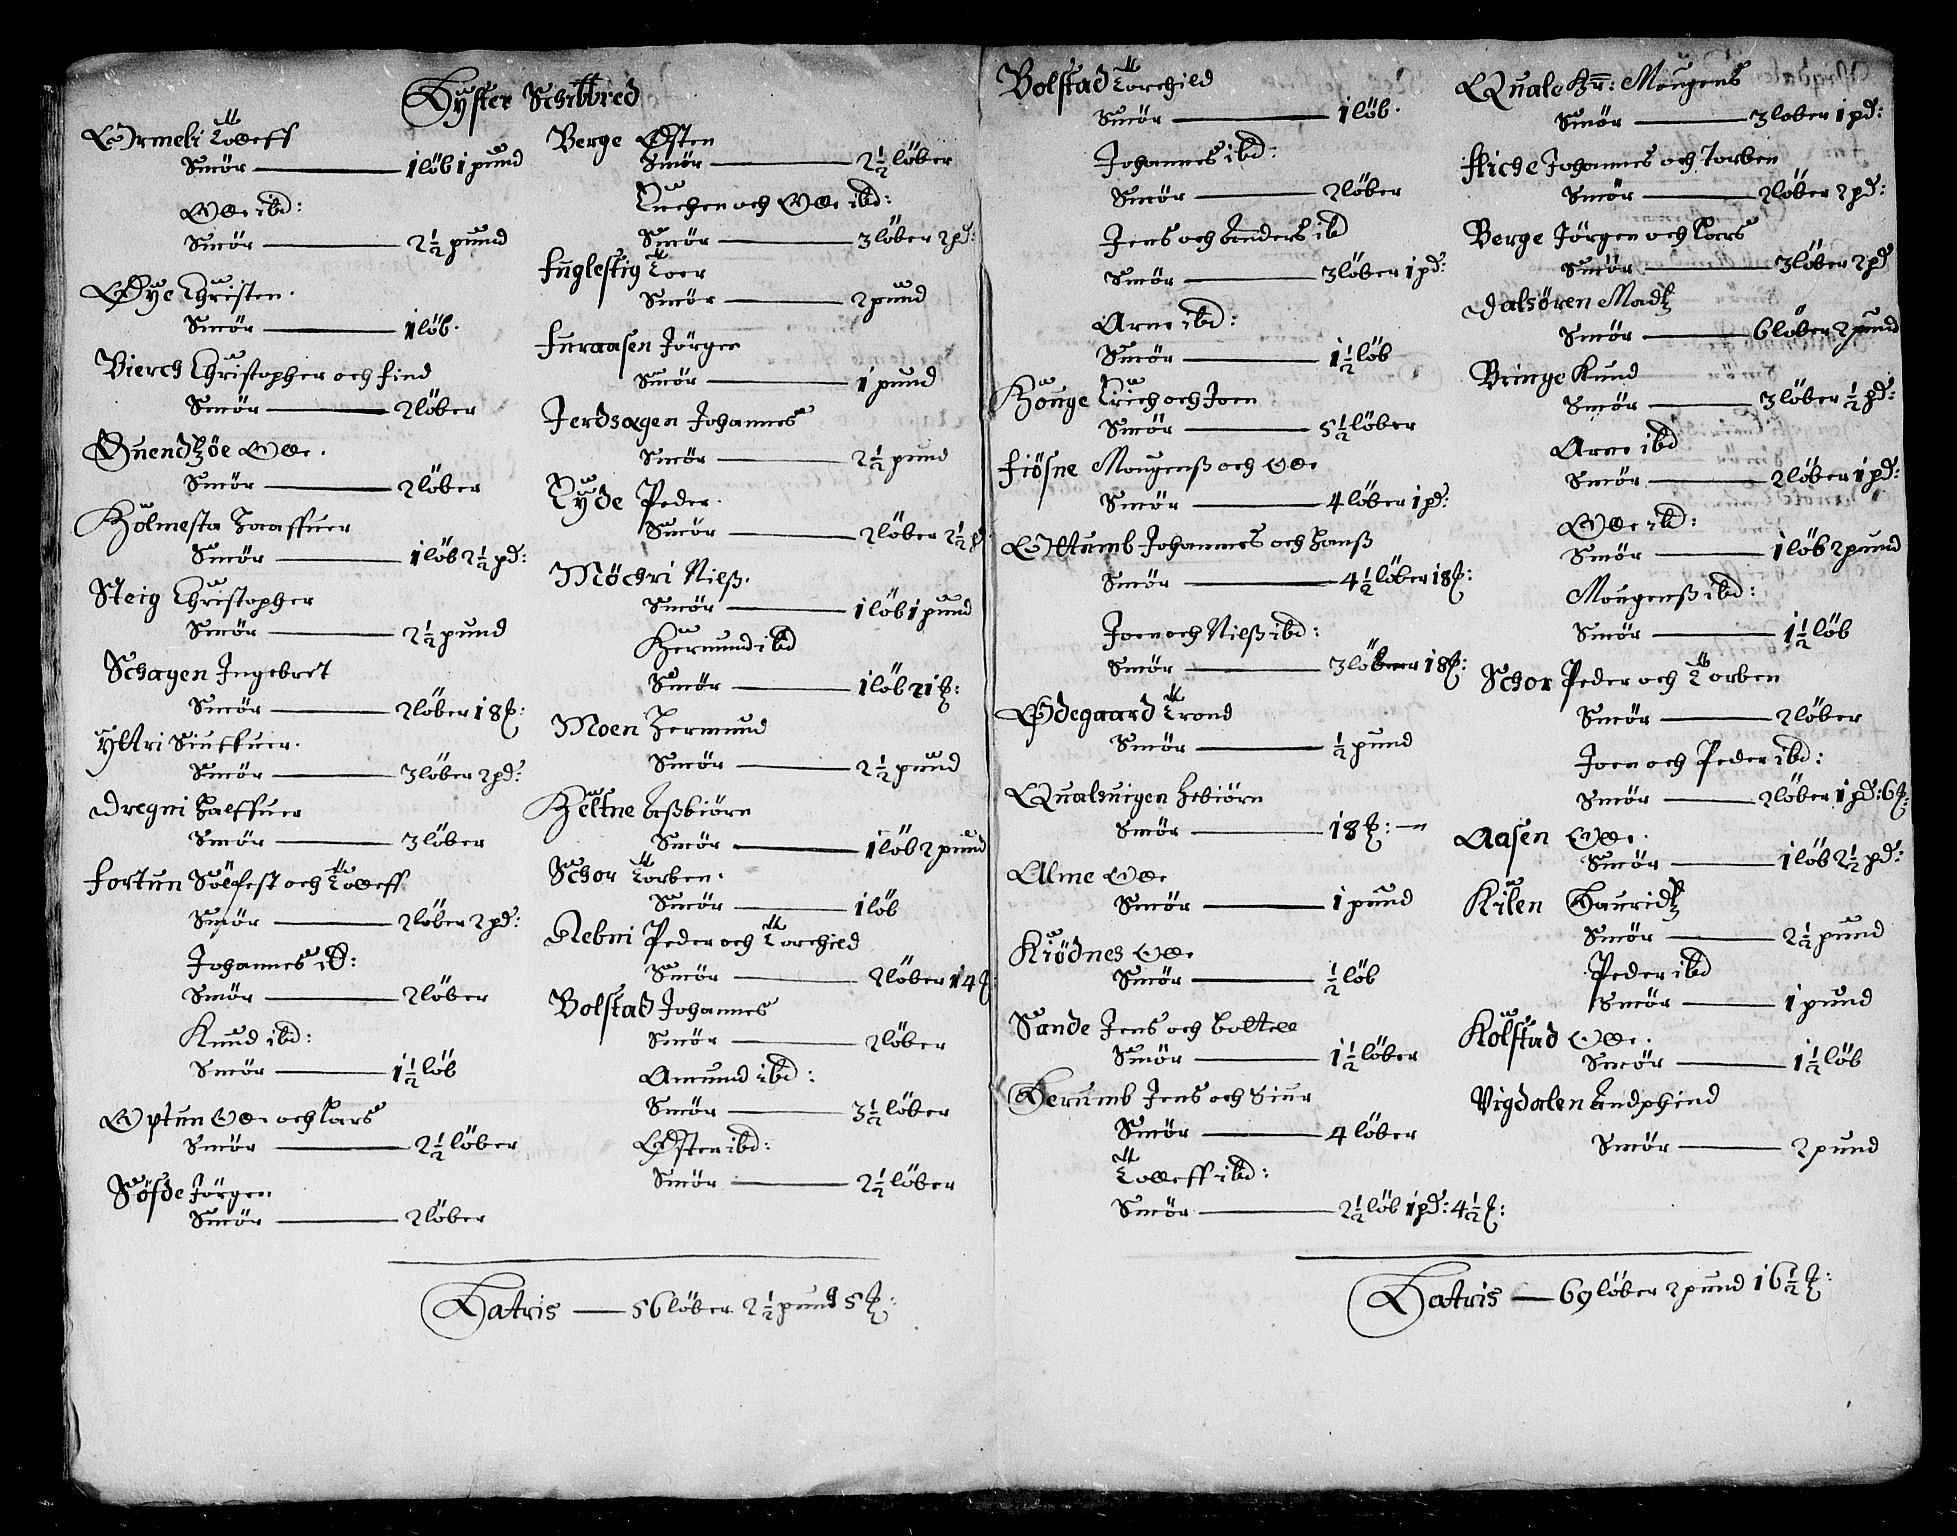 Lyster Schibbred
Ormeli Tolleff
Smör — 1 löb 1 pund
Olle ibd:
Smör — 2½ pund
Øye Christen.
Smör — 1 löb.
Bierch Christopher och find
Smör — 2 löber
Quendzöe Olle.
Smör — 2 löber
Holmesta Haaffuer
Smör — 1 löb 2½ pd:
Steig Christopher
Smör — 2½ pund
Schagen Ingebret
Smör — 2 löber 18 ℔:
Yttri Siuffuer.
Smör — 3 löber 2 pd:
Dregni Halffuer
Smör — 3 löber
fortun Sölfest och Tolleff
Smör — 2 löber 2 pd:
Johannes ib:
Smör — 2 löber
Knud ibd:
Smör — 1½ löb
Optun Olle och Lars
Smör — 2½ löber
Söfde Jörgen
Smör — 2 löber
Berge Østen
Smör — 2½ löber
Luchen och Olle ibd:
Smör — 3 löber 2 pd:
fuglestig Toer
Smör — 2 pund
furaasen Jörgen
Smör — 1 pund
Jerdsagen Johannes
Smör — 2½ pund
Eyde Peder.
Smör — 2 löber 2½ pd
Möchri Nilß.
Smör — 1 löb 1 pund
Hermund ibd
Smör — 1 löb 21 ℔:
Moen Hermund
Smör — 2½ pund
Heltne Aßbiörn
Smör — 1 löb 2 pund
Schor Torben.
Smör — 1 löb
Nebni Peder och Torchild
Smör — 2 löber 14 ℔
Bolstad Johannes
Smör — 2 löber
Amund ibd:
Smör — 3½ löber
Østen ibd:
Smör — 2½ löber
Latris — 56 löber 2½ pund 5 ℔:
Bolstad Torchild
Smör — 1 löb.
Johannes ibd:
Smör — 2 löber
Jens och Anders ibd
Smör — 3 löber 1 pd:
Arne ibd:
Smör — 1½ löb
Houge Erich och Joen
Smör — 5½ löber
fiösne Mougenß och Olle
Smör — 4 löber 1 pd:
Ottumb Johannes och Hanß
Smör — 4½ löber 18 ℔:
Joen och Nilß ibd:
Smör — 3 löber 18 ℔:
Ødegaard Trond
Smör — ½ pund
Qualuigen Hebiörn
Smör — 18 ℔: —
Alme Olle
Smör — 1 pund
Kiödnes Olle
Smör — ½ löb
Sande Jens och Botell
Smör — 1½ löber
Lerumb Jens och Siur
Smör — 4 löber
Tolleff ibd:
Smör — 2½ löb 1 pd: 4½ ℔:
Quale Hr: Mougens
Smör — 3 löber 1 pd:
fliche Johannes och Torben
Smör — 2 löber 2 pd:
Berge Jörgen och Lars
Smör — 3 löber 2 pd
Dalsören Madtz
Smör — 6 löber 2 pund
Bringe Knud
Smör — 3 löber ½ pd:
Arne ibd
Smör — 2 löber 1 pd:
Olle ibd:
Smör — 1 löb 2 pund
Mougenß ibd:
Smör — 1½ löb
Schor Peder och Torben
Smör — 2 löber
Joen och Peder ibd:
Smör — 2 löber 1 pd: 6 ℔:
Aasen Olle.
Smör — 1 löb 2½ pd:
Kilen Lauridtz
Smör — 2½ pund
Peder ibd
Smör — 1 pund
Kolstad Olle.
Smör — 1½ löb
Vigdalen Andphind
Smör — 2 pund
Latris — 69 löber 2 pund 16½ ℔: